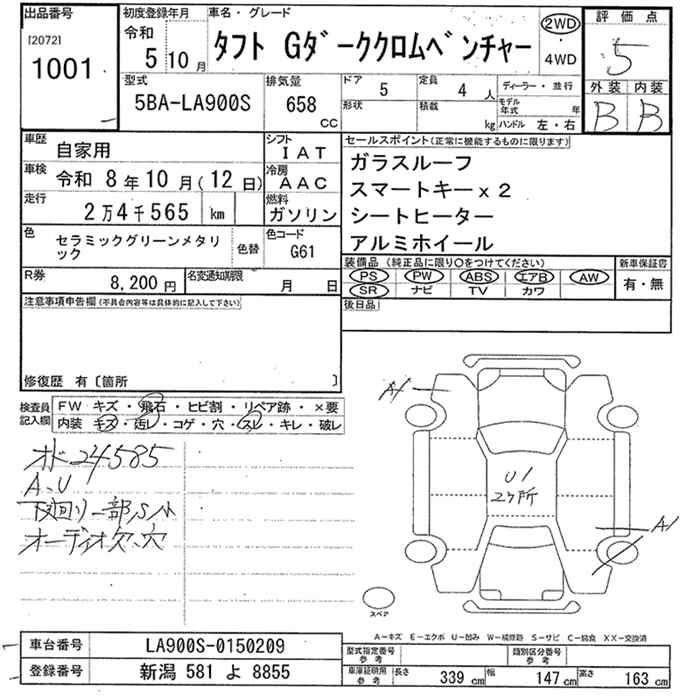 出品番号
[2072]
1001
初度登録年月
令和
5 10月
車名・グレード
タフト Gダーククロムベンチャー
2WD
・
4WD
評価点
5
外装 内装
B B
型式
5BA-LA900S
排気量
658 CC
ドア 5
形状
定員 4人
積載 kg
ディーラー・並行
モデル年式 年
ハンドル 左・右
車歴 自家用
シフト IAT
車検 令和 8年10月(12日)
冷房 AAC
走行 2万4千565 km
燃料 ガソリン
色 セラミックグリーンメタリ
ック
色替
色コード G61
R券 8,200円
名変通知期限 月 日
セールスポイント(正常に機能するものに限ります)
ガラスルーフ
スマートキーx2
シートヒーター
アルミホイール
装備品(純正品に限り〇をつけてください)
PS PW ABS エアB AW
SR ナビ TV カワ
新車保証書
有・無
後日品
注意事項申告欄(不具合内容等は具体的に記入して下さい)
修復歴 有〔箇所 〕
検査員
記入欄
FW キズ・飛石・ヒビ割・リペア跡・×要
内装 キズ・汚レ・コゲ・穴・スレ・キレ・破レ
オドー24585
A、U
下回り一部S小
オーディオ欠、穴
A1
U1
2ヶ所
A1
スペア
A-キズ E-エクボ U-凹み W-補修跡 S-サビ C-腐食 XX-交換済
車台番号 LA900S-0150209
登録番号 新潟 581 よ 8855
型式指定番号
参考
類別区分番号
参考
車庫証明用
参考
長さ 339 cm 幅 147 cm 高さ 163 cm